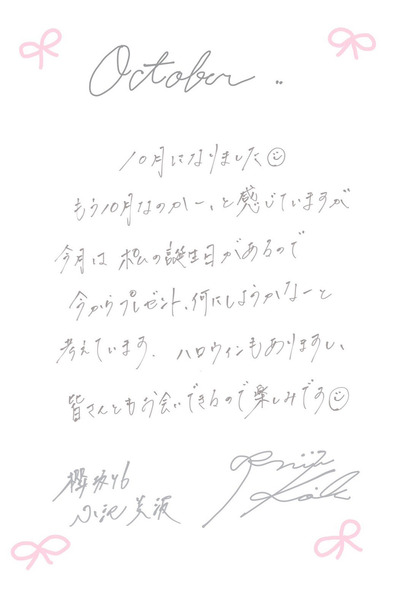 October ..
10月になりました☺
もう10月なのかー、と感じていますが
今月は ポムの誕生日があるので
今からプレゼント、何にしようかなーと
考えています. ハロウィンもありますし、
皆さんともお会いできるので楽しみです☺
櫻坂46
小池美波